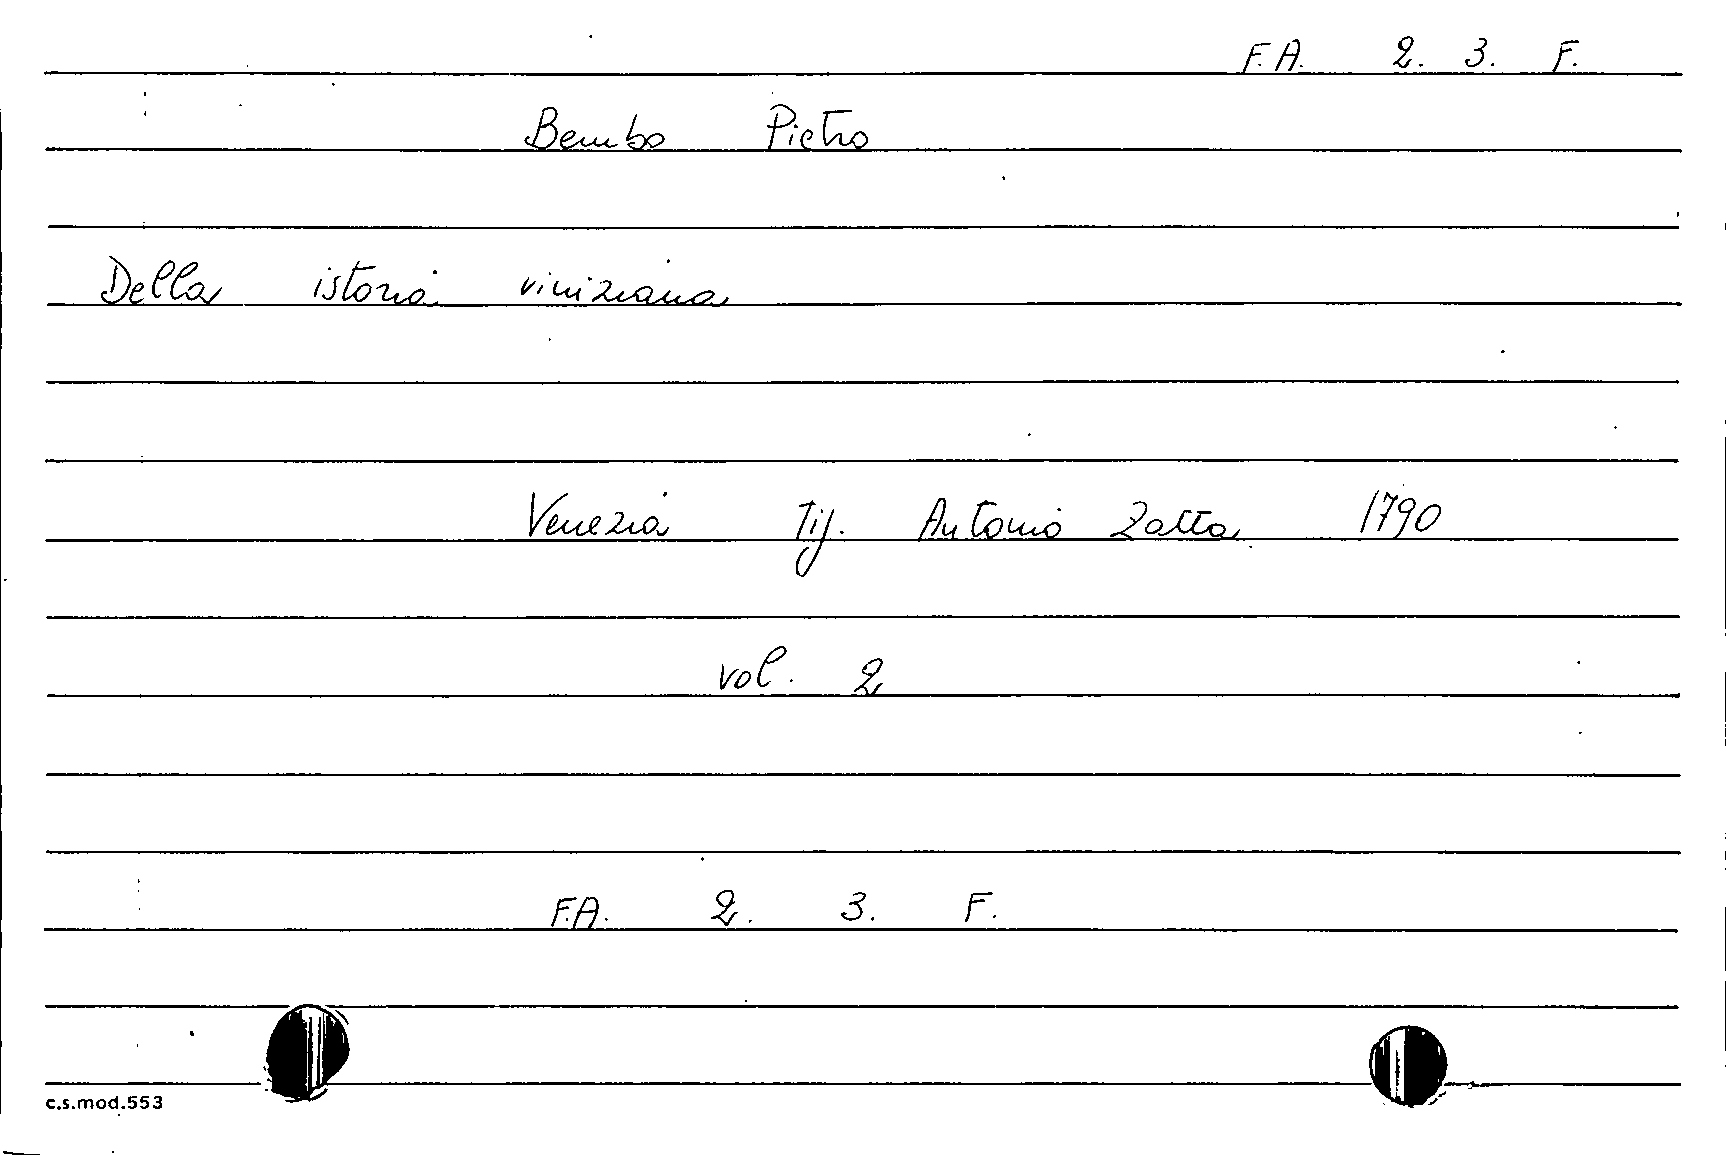 F.A. 2. 3. F.
Bembo Pietro
Della istoria viniziana
Venezia Tip. Antonio Zatta 1790
vol. 2
F.A. 2. 3. F.
c.s.mod.553